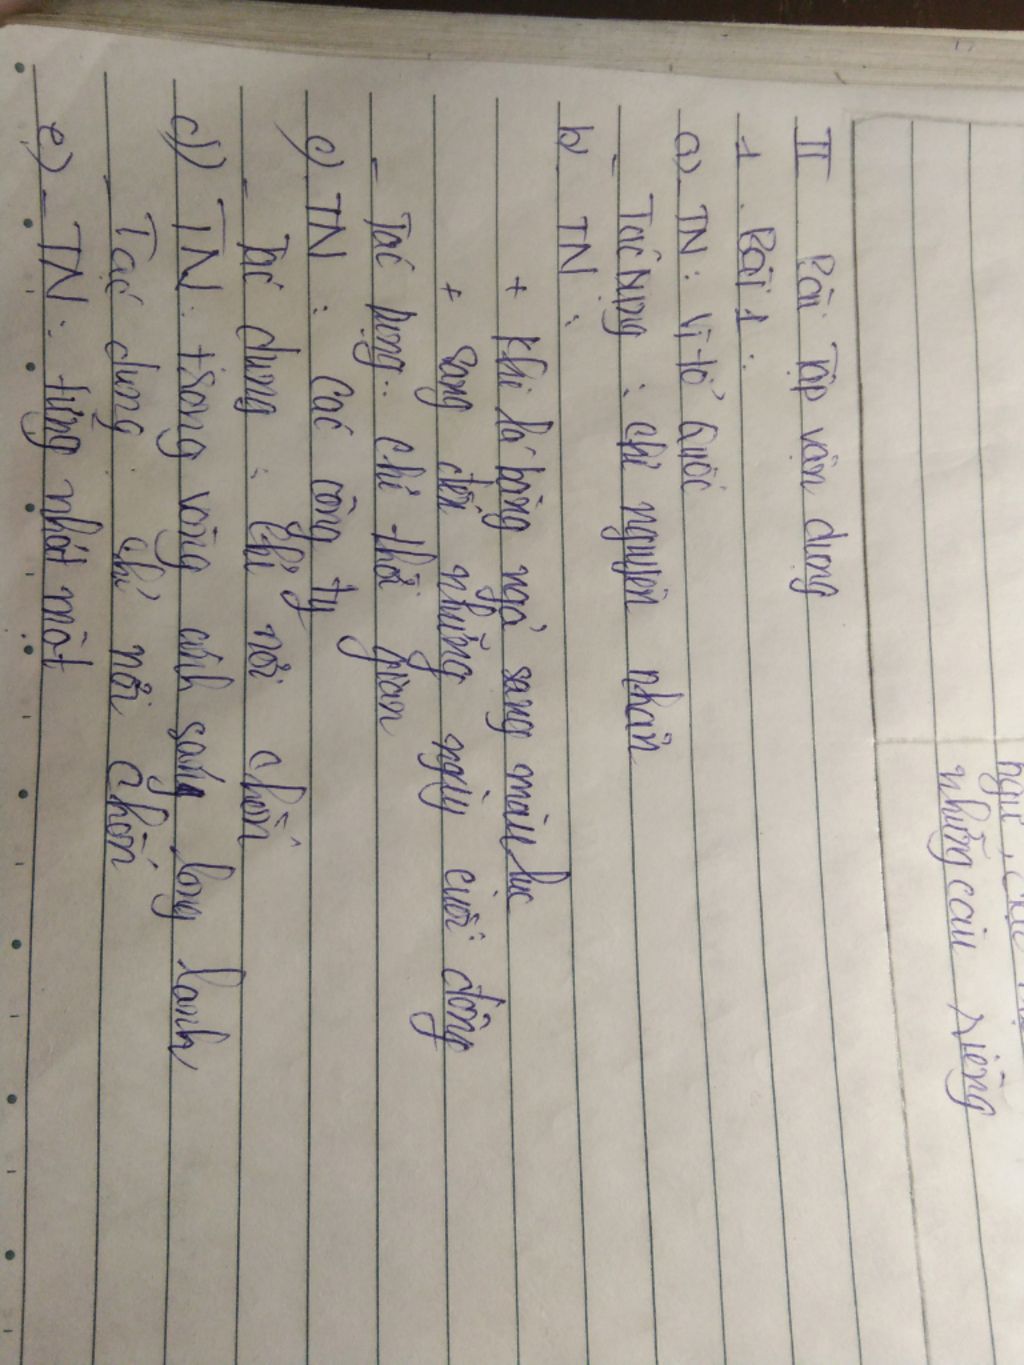 những câu riêng
II Bài Tập vận dụng
1. Bài 1:
a) - TN: Vì tổ Quốc
- Tác dụng: chỉ nguyên nhân
b) TN:
+ khi lá bàng ngả sang màu lục
+ sang đến những ngày cuối đông
- Tác dụng: chỉ thời gian
c) TN: Các công ty
- Tác dụng: chỉ nơi chốn
d) TN: trong vòng ánh sáng long lanh
- Tác dụng: chỉ nơi chốn
e) - TN: từng nhát một